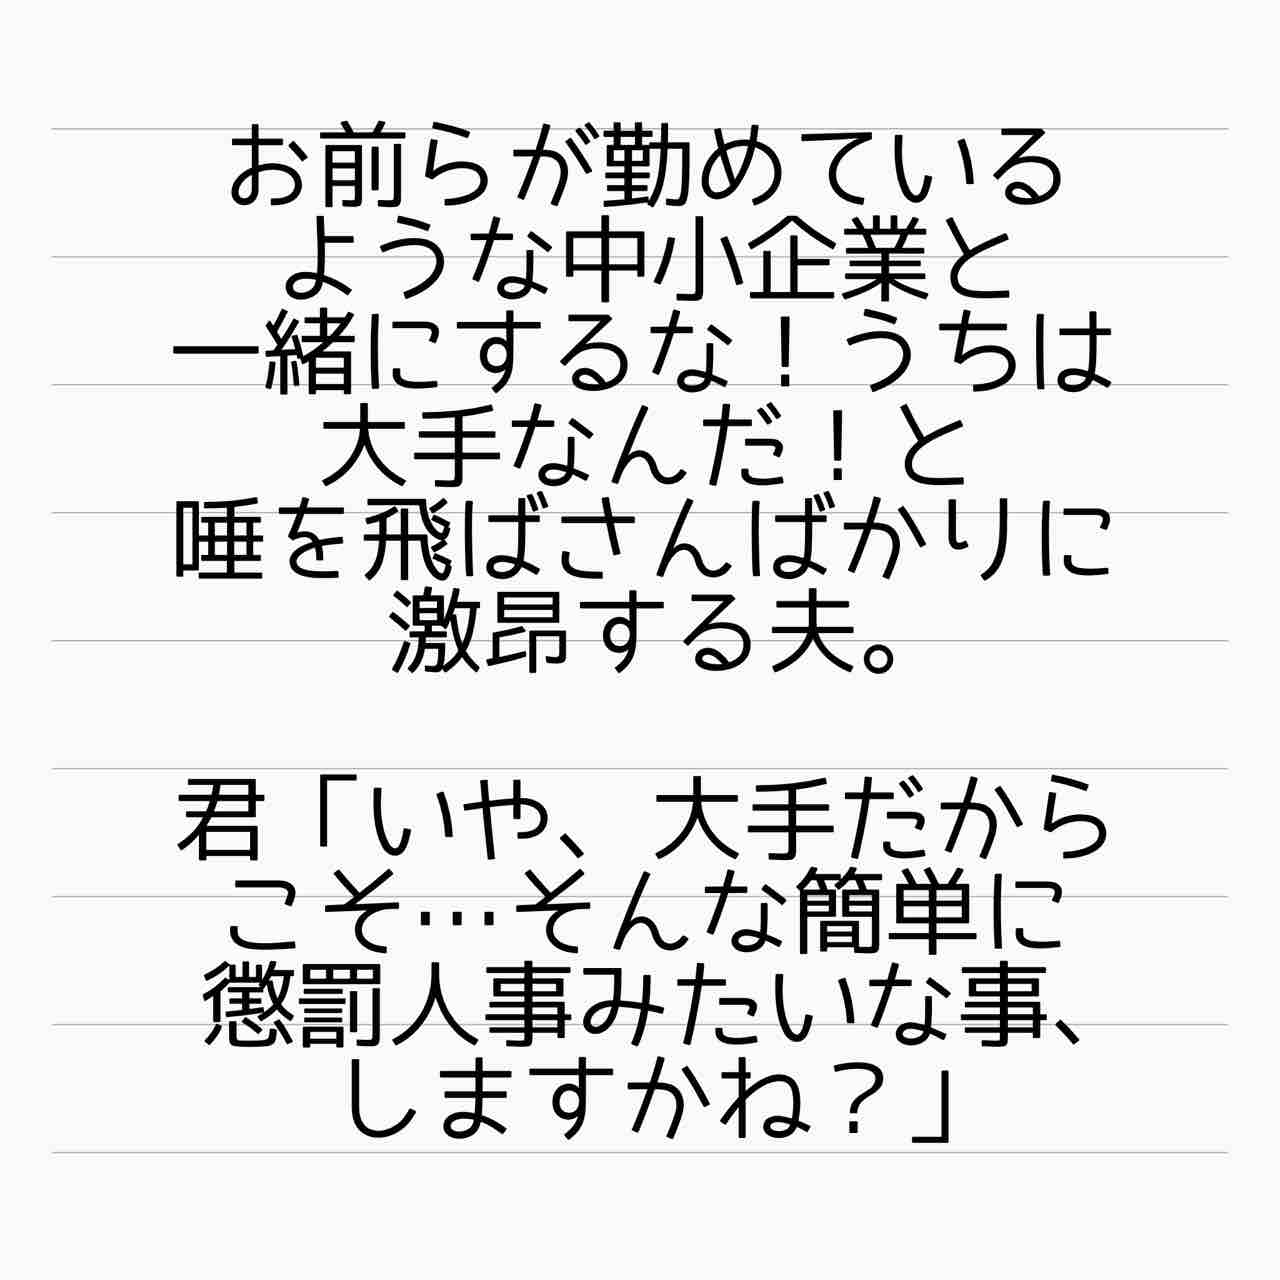 お前らが勤めている
ような中小企業と
一緒にするな！うちは
大手なんだ！と
唾を飛ばさんばかりに
激昂する夫。
君「いや、大手だから
こそ…そんな簡単に
懲罰人事みたいな事、
しますかね？」